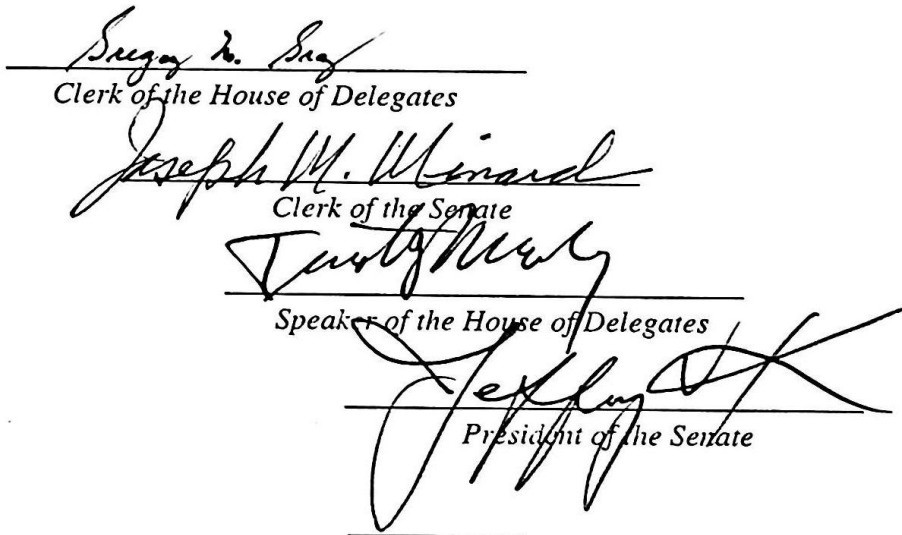 Gregory M. Gray
Clerk of the House of Delegates
Joseph M. Minard
Clerk of the Senate
Speaker of the House of Delegates
Jeffrey
President of the Senate